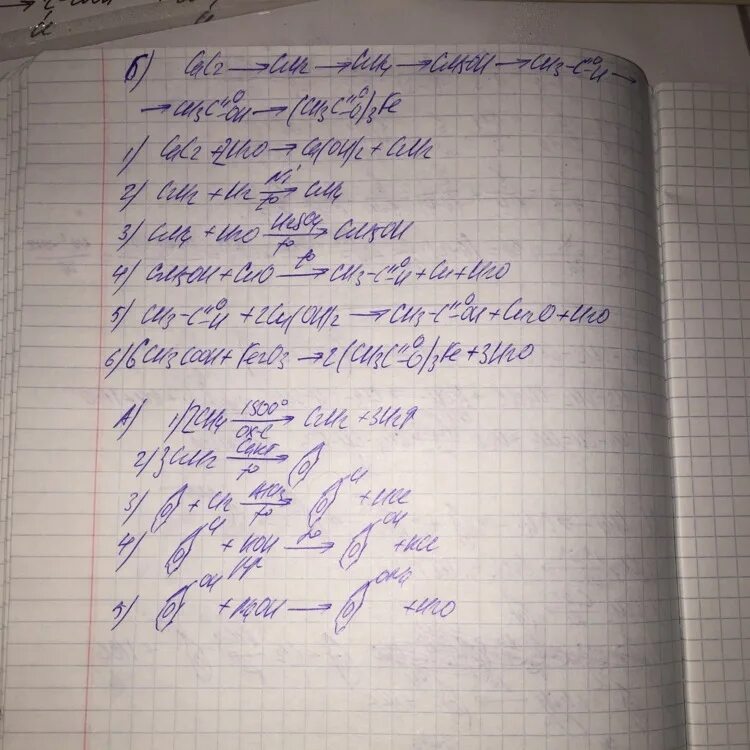 б) CaC2 → C2H2 → C2H4 → C2H5OH → CH3-C=O-H →
→ CH3C=O-OH → (CH3C=O-O)3Fe
1) CaC2 + 2H2O → Ca(OH)2 + C2H2
2) C2H2 + H2 Ni t° → C2H4
3) C2H4 + H2O H2SO4 t° → C2H5OH
4) C2H5OH + CuO t° → CH3-C=O-H + Cu + H2O
5) CH3-C=O-H + 2Cu(OH)2 → CH3-C=O-OH + Cu2O + H2O
6) 6CH3COOH + Fe2O3 → 2(CH3C=O-O)3Fe + 3H2O
А) 1) 2CH4 1500° → C2H2 + 3H2↑
2) 3C2H2 Cакт t° →
3) + Cl2 AlCl3 t° → Cl + HCl
4) Cl + KOH t° → OH + KCl
5) OH + NaOH → ONa + H2O